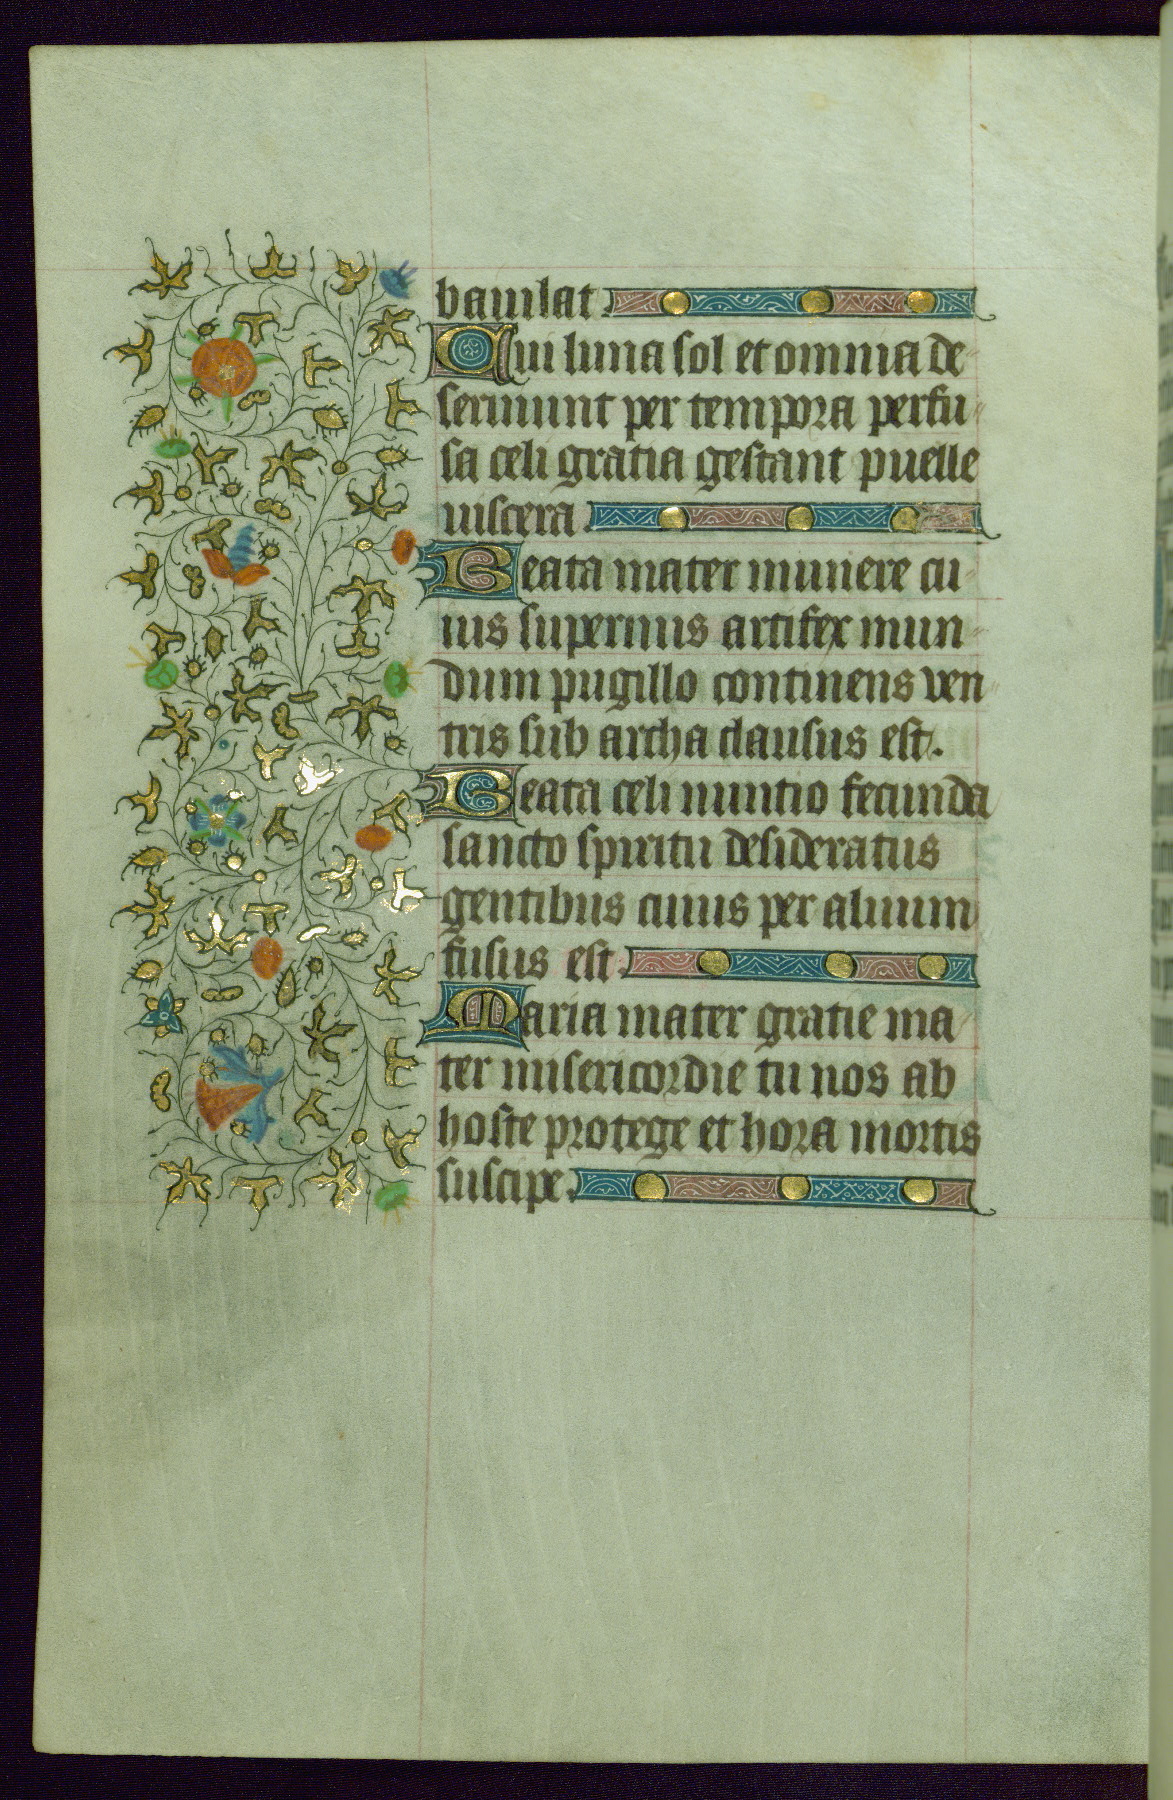 bauilat.
Cui luna sol et omnia de
seruiunt per tempora perfu
sa celi gratia gestant puelle
uiscera.
Beata mater munere cu
ius supernus artifex mun
dum pugillo continens ven
tris sub archa clausus est.
Beata celi nuntio fecunda
sancto spiritu desideratus
gentibus cuius per aluum
fusus est.
Maria mater gratie ma
ter misericordie tu nos ab
hoste protege et hora mortis
suscipe.